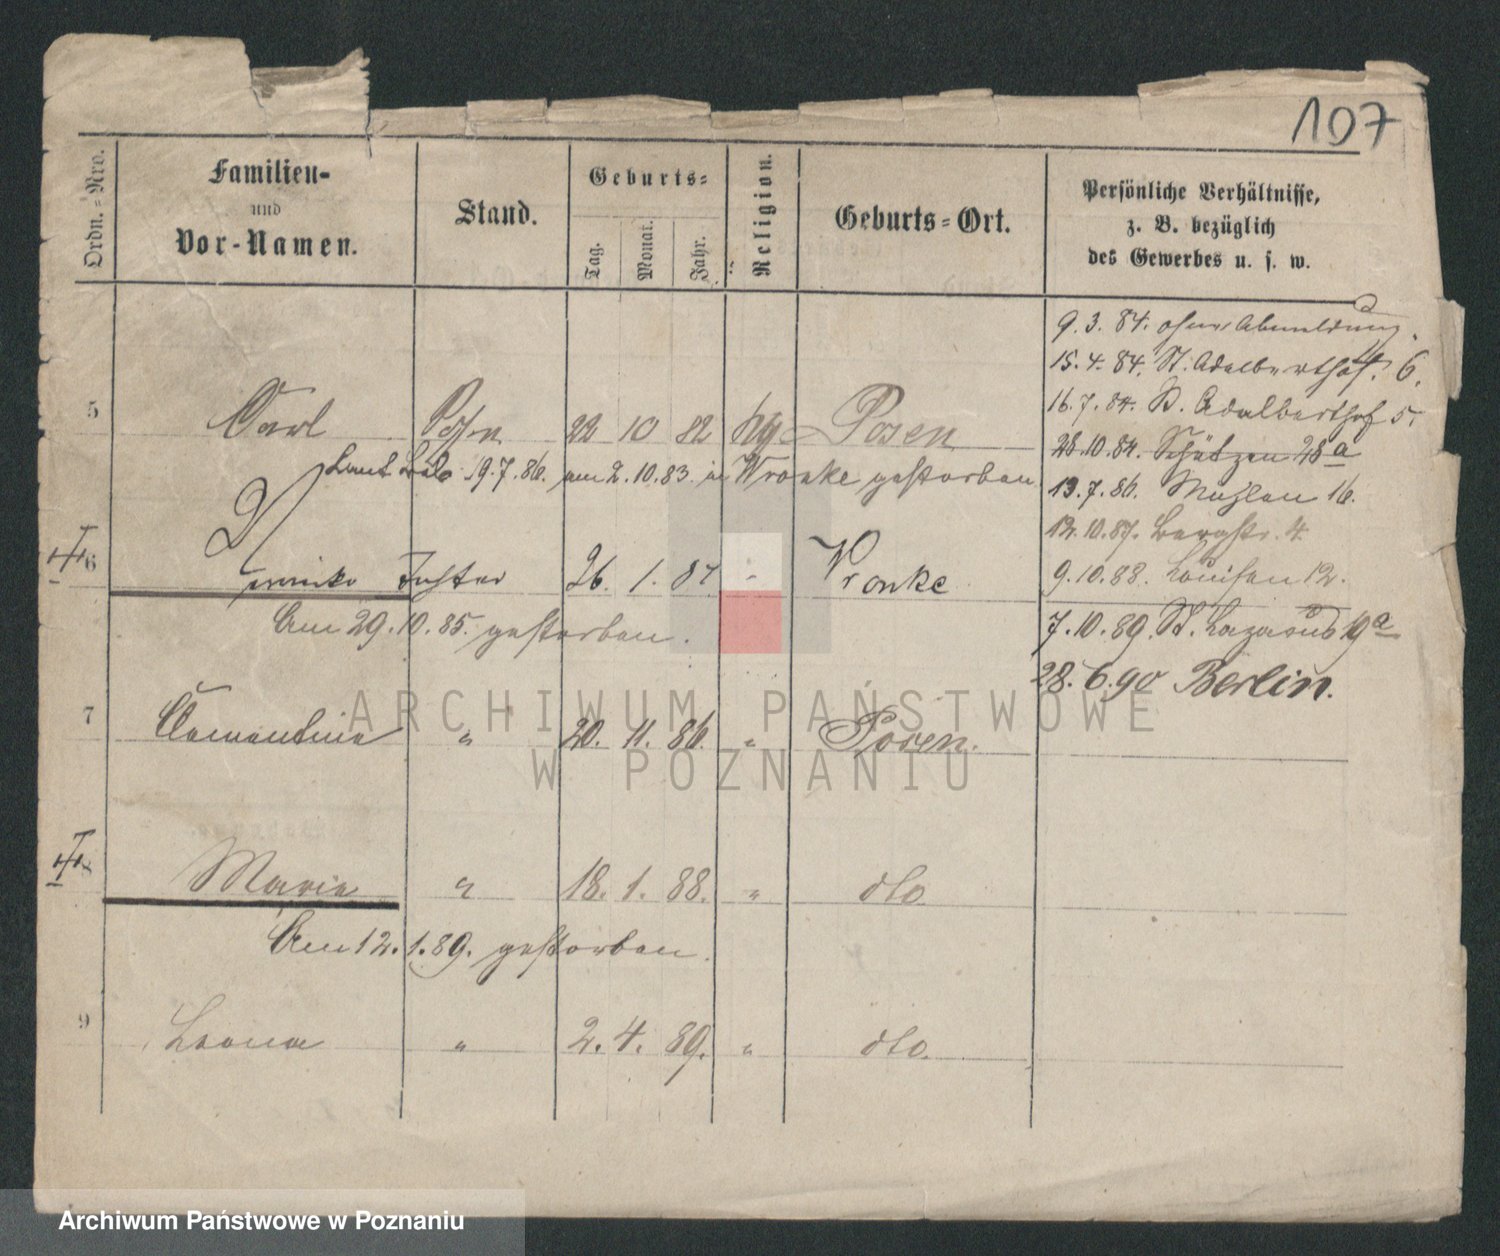 107
Ordn.=Nro.
Familien-
und
Vor-Namen.
Stand.
Geburts=
Tag.
Monat.
Jahr.
Religion.
Geburts=Ort.
Persönliche Verhältnisse,
z. B. bezüglich
des Gewerbes u. s. w.
9. 3. 84. ohne Abmeldung.
15. 4. 84. St. Adalberthof. 6.
16. 7. 84. St. Adalberthof 5.
28. 10. 84. Schützen 28a
13. 7. 86. Mühlen 16.
12. 10. 87. Bergstr. 4.
9. 10. 88. Louisen 12.
7. 10. 89. St. Lazarus 19a
28. 6. 90 Berlin.
5 Carl Sohn 22 10 82 Posen
Laut 19. 7. 86. am 2. 10. 83. in Wronke gestorben
6 Tochter 26. 1. 84 " Wronke
Am 29. 10. 85. gestorben.
7 Clementine " 20. 11. 86. " Posen.
8 Marie " 18. 1. 88. " dto
Am 12. 1. 89. gestorben.
9 Leona " 2. 4. 89. " dto.
ARCHIWUM PAŃSTWOWE
W POZNANIU
Archiwum Państwowe w Poznaniu